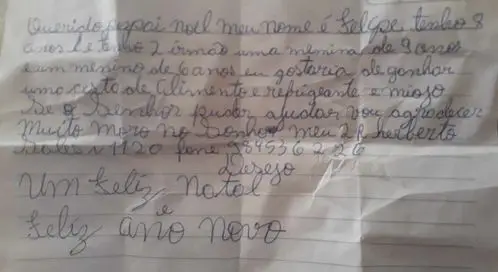 Querido papai noel meu nome é Felipe tenho 8
anos e tenho 2 irmão uma menina de 9 anos
e um menino de 6 anos eu gostaria de ganhar
uma cesta de alimento e refrigeante e miojo
Se o Senhor puder ajudar vou agradecer
Muito moro no Sonho meu 2 R herberto
Sales n 1120 fone 984536226
Desejo
Um feliz Natal
e
feliz ano novo